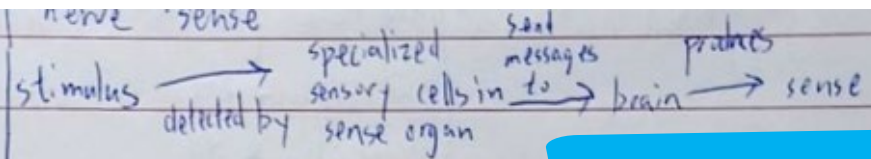 nerve sense
stimulus → detected by specialized sensory cells in sense organ send messages to → brain → produces sense